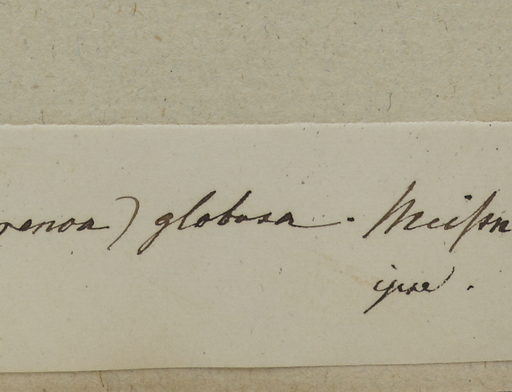 renoa) globosa. Meiſsn
ipse.